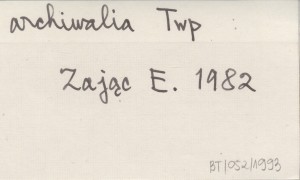 archiwalia Twp
Zając E. 1982
BT/052/1993